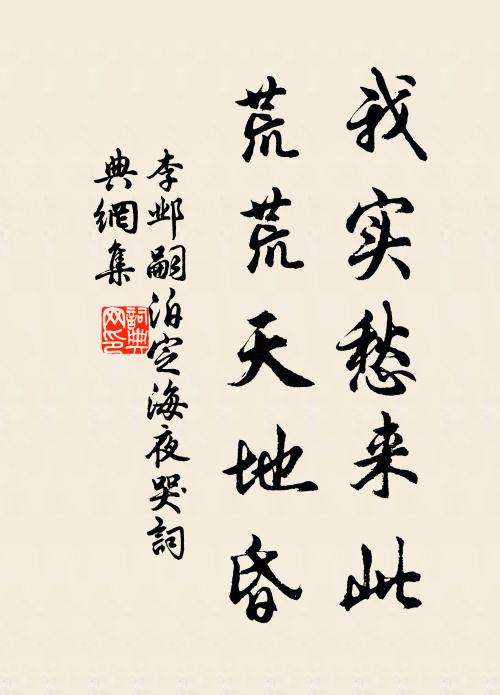 我实愁来此
荒荒天地昏
李邺嗣泊定海夜哭詞
典網集
詞典网印